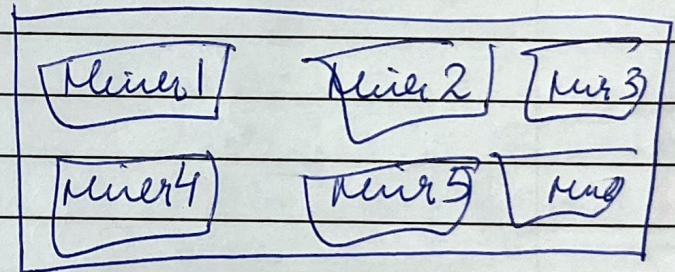 Miner 1 Miner 2 Mir 3
Miner 4 Miner 5